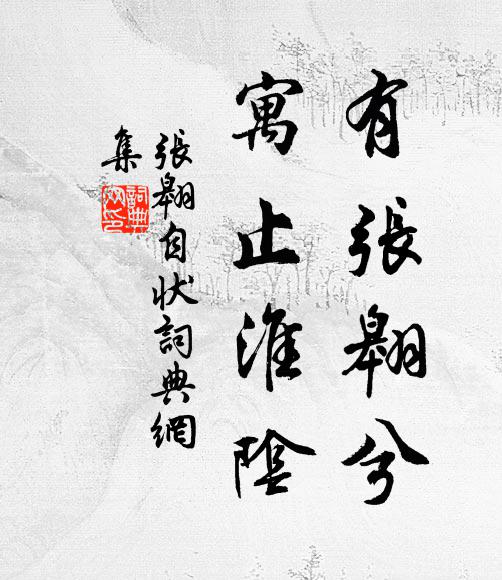 有張翱兮
寓止淮陰
張翱自狀詞典網
集
詞典網印